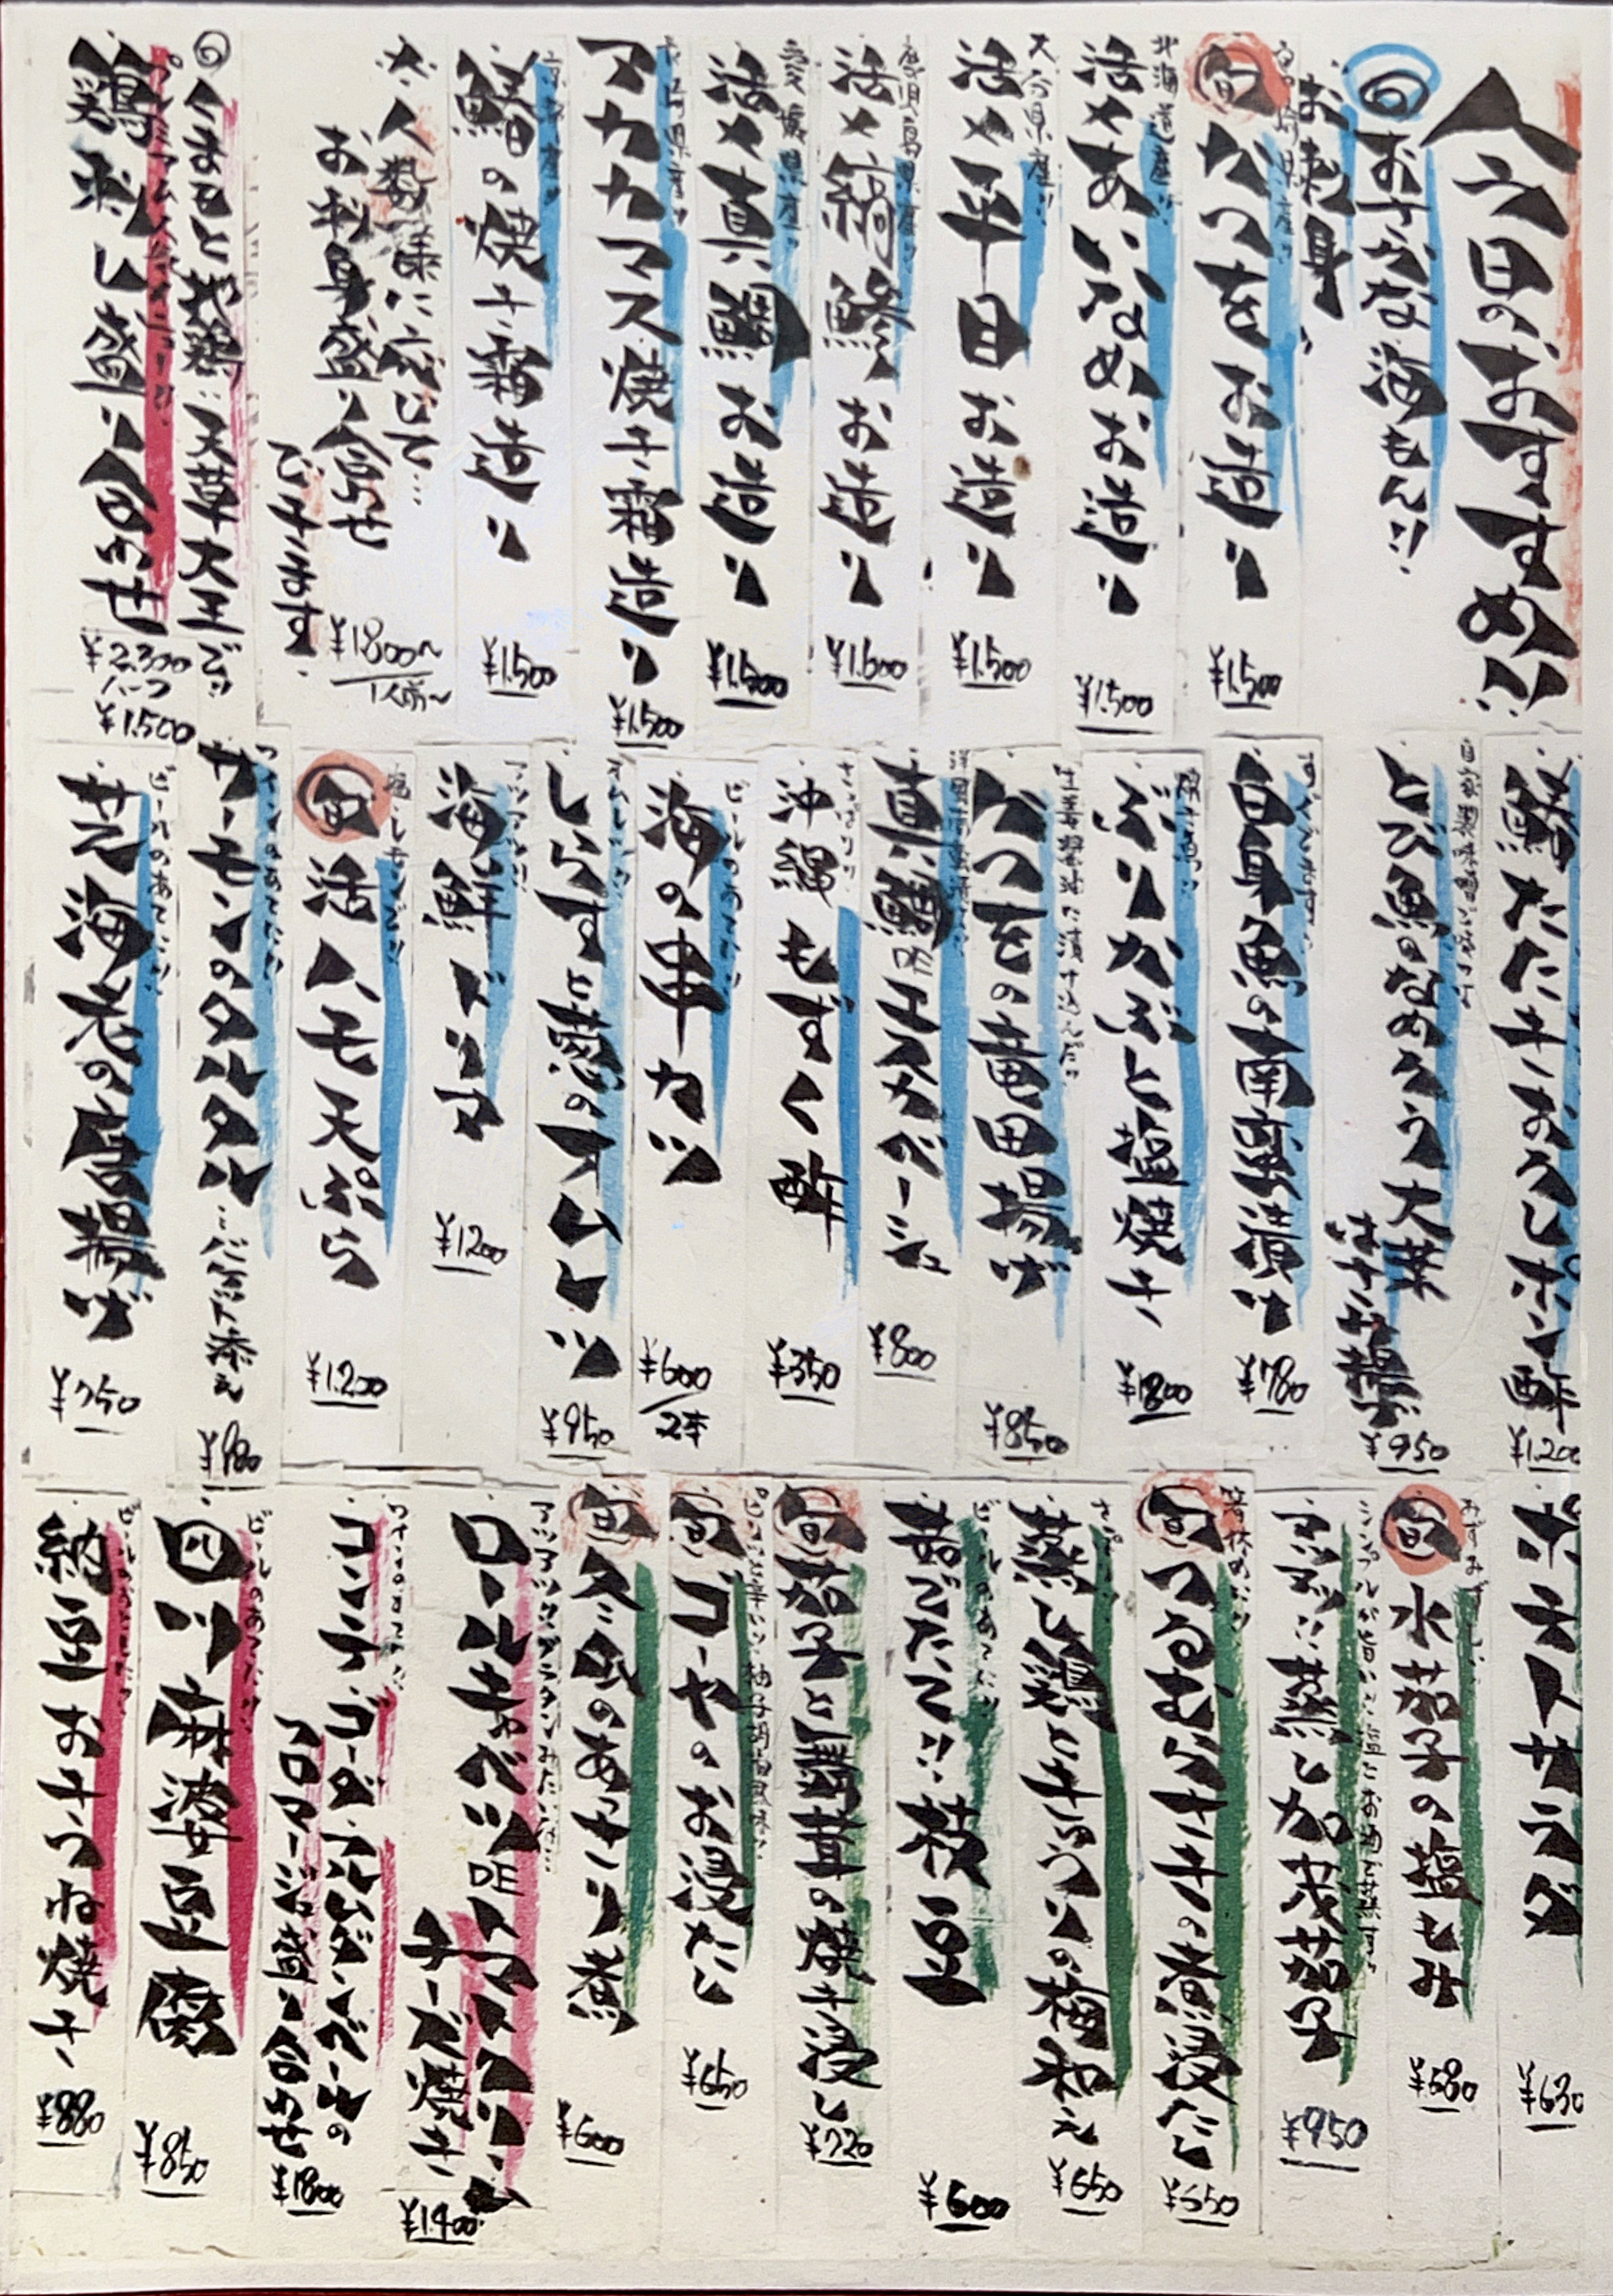 今日のおすすめ!!
お子かな海もん!!
お刺身
旬 かつをお造り
¥1,500
北海道産!!
活〆あいなめお造り
¥1,500
大分県産!!
活〆平目お造り
¥1,500
鹿児島県産!!
活〆縞鯵お造り
¥1,600
愛媛県産!!
活〆真鯛お造り
¥1,500
マカカマス焼き霜造り
¥1,500
鰆の焼き霜造り
¥1,500
※人数様に応じて…
お刺身盛り合わせ
できます
¥1,800〜
1人前〜
くまもと地鶏!!天草大王です!!
鶏刺し盛り合わせ
¥2,300
ハーフ
¥1,500
鰆たたきおろしポン酢
¥1,200
とび魚のなめろう大葉
はさみ揚げ
¥950
白身魚の南蛮漬け
¥780
ぶりかぶと塩焼き
¥1,800
生姜醤油に漬け込んだ!!
かつをの竜田揚げ
¥850
真鯛DEエスカベーシュ
¥800
さっぱり!!
沖縄もずく酢
¥350
ビールのあてに!!
海の串カツ
¥600
2本
しらすと葱のオムレツ
¥950
アツアツ!!
海鮮ドリア
¥1,200
旬 活ハモ天ぷら
¥1,200
ワインのあてに!!
サーモンのタルタル…バゲット添え
¥980
ビールのあてに!!
芝海老の唐揚げ
¥750
ポテトサラダ
¥630
みずみずしい!!
旬 水茄子の塩もみ
¥580
アツアツ!!蒸し加茂茄子
¥950
箸休めに!!
旬 つるむらさきの煮浸だし
¥550
蒸し鶏ときゅうりの梅和え
¥650
ビールのあてに!!
茹でたて!!枝豆
¥600
旬 茄子と舞茸の焼き浸し
¥720
ピリッと辛い!!柚子胡椒風味!!
旬 ゴーヤのお浸だし
¥650
旬 冬瓜のあっさり煮
¥600
アツアツ!!グラタンみたいな…
ロールキャベツDEトマトクリーム
チーズ焼き
¥1,400
ワインのあてに!!
コンテ ゴーダ アムステルダムの
フロマージュ盛り合わせ
¥1,800
ビールのあてに!!
四川麻婆豆腐
¥850
ビールのあてに!!
納豆おきつね焼き
¥880